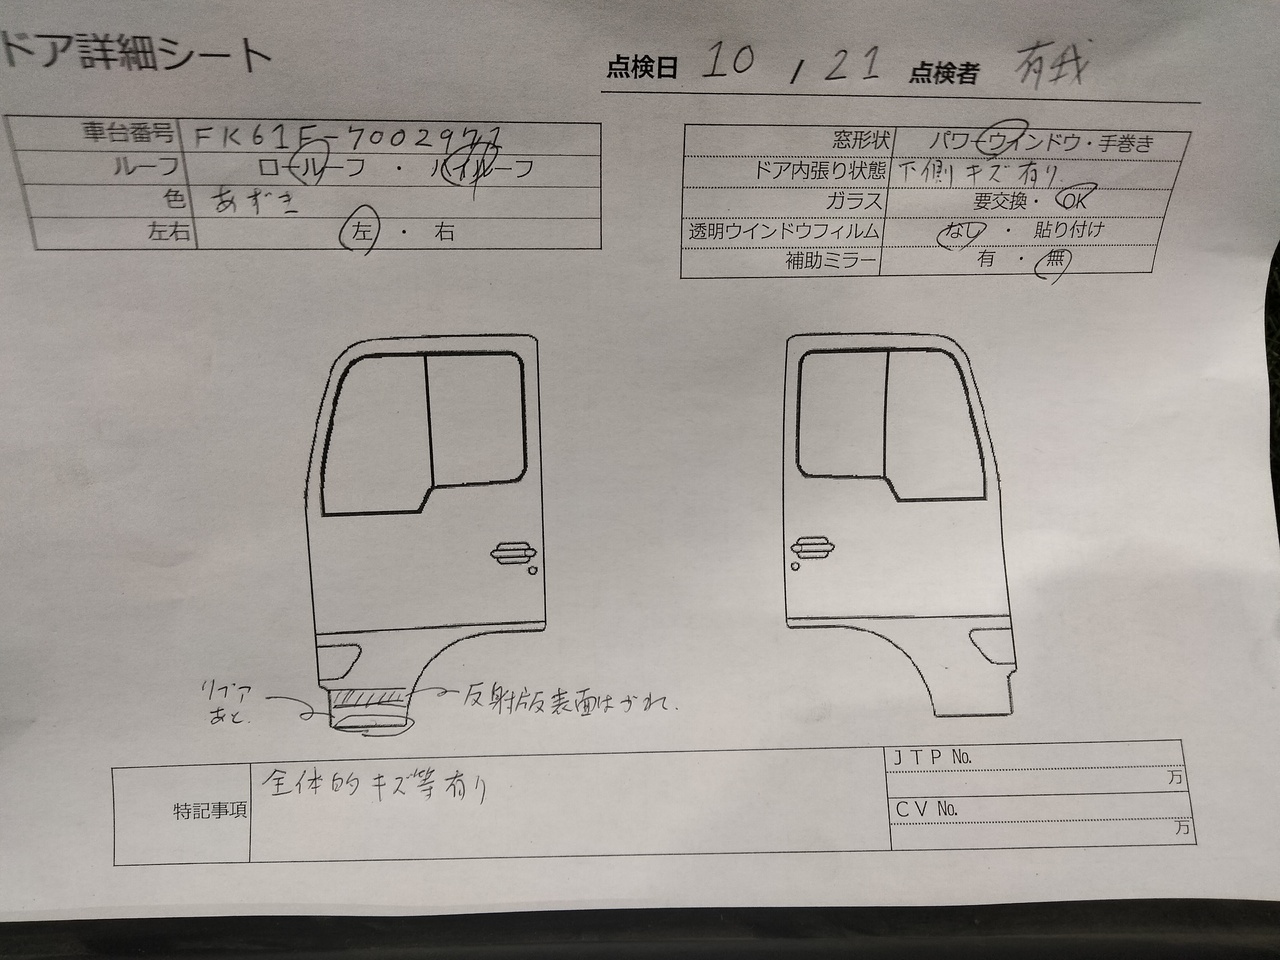 ドア詳細シート
点検日 10 / 21 点検者 有我
車台番号 FK61F-7002971
ルーフ ロールーフ ・ ハイルーフ
色 あずき
左右 左 ・ 右
窓形状 パワーウインドウ・手巻き
ドア内張り状態 下側キズ有り
ガラス 要交換・OK
透明ウインドウフィルム なし ・ 貼り付け
補助ミラー 有 ・ 無
リブア
あと.
反射版表面はがれ.
特記事項 全体的キズ等有り
JTP №.
万
CV №.
万